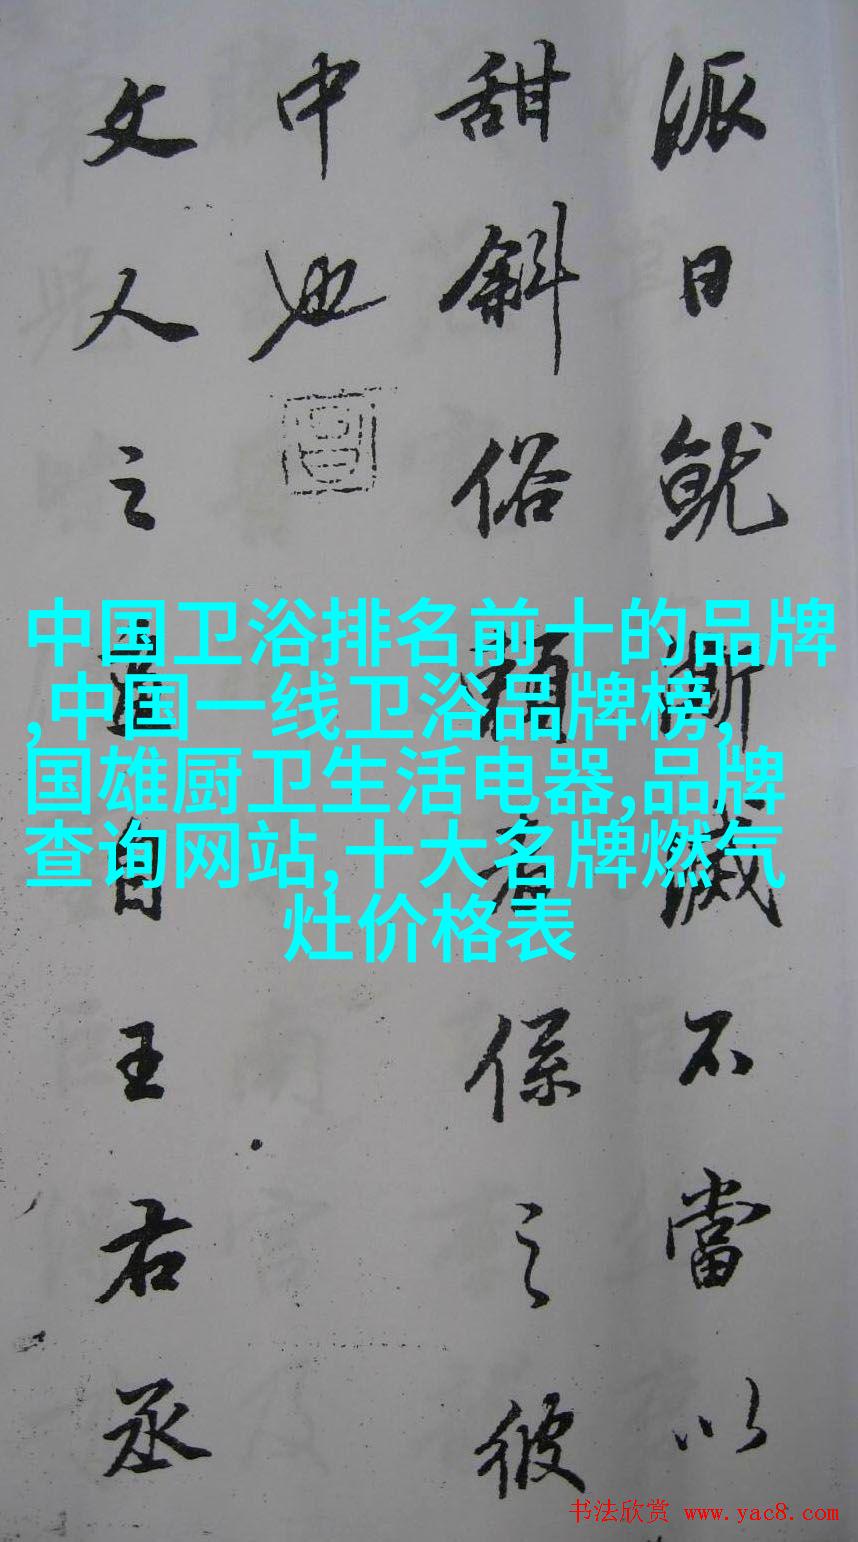 派日就滅不當以
甜斜俗賴者係之彼
中也
文人之自王右丞
中国卫浴排名前十的品牌
,中国一线卫浴品牌榜,
国雄厨卫生活电器,品牌
查询网站,十大名牌燃气
灶价格表
书法欣赏 www.yac8.com